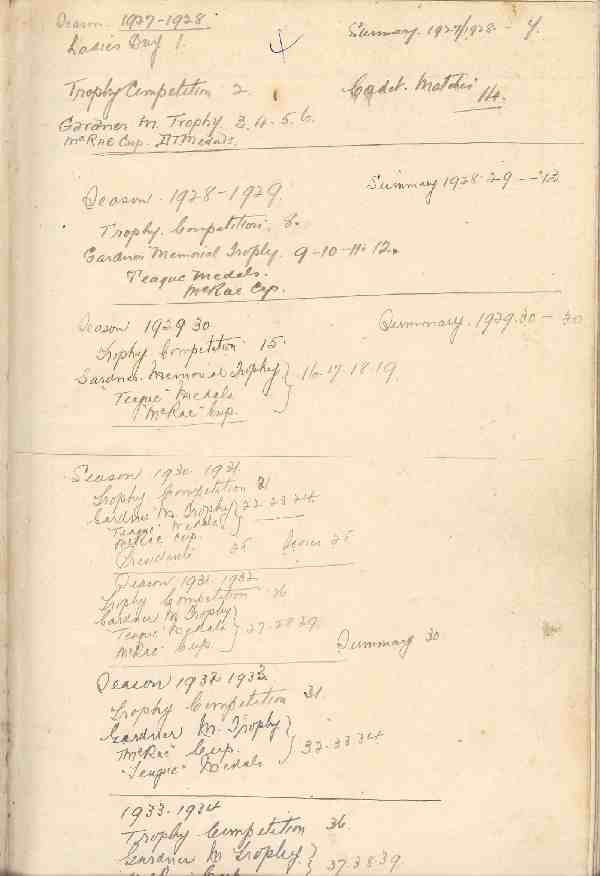 Season. 1927-1928. Summary. 1927/1928. - 7.
Ladies Day 1.
Trophy Competition 2. Cadet. Matches 14.
Gardner M. Trophy 3. 4. 5. 6.
McRae Cup. Medals.
Season. 1928-1929. Summary 1928.29 -- 13
Trophy. Competition. 8.
Gardner Memorial Trophy. 9-10-11. 12.
Teague Medals.
McRae Cup.
Season 1929 30 Summary. 1929.30 - 20
Trophy Competition 15.
Gardner. Memorial Trophy } 16-17-18-19.
"Teague" Medals
"McRae" Cup.
Season 1930. 1931.
Trophy Competition 21
Gardner M. Trophy } 22-23 24.
Teague Medals
McRae Cup.
Presidents 25 25
Season 1931-1932
Trophy Competition 26
Gardner M Trophy }
"Teague" Medals } 27-28 29.
McRae Cup. Summary 30
Season 1932 1933.
Trophy Competition 31.
Gardner M. Trophy }
"McRae" Cup. } 32-33 34.
"Teague" Medals
1933-1934
Trophy Competition 36.
Gardner M Trophy } 37.38.39.